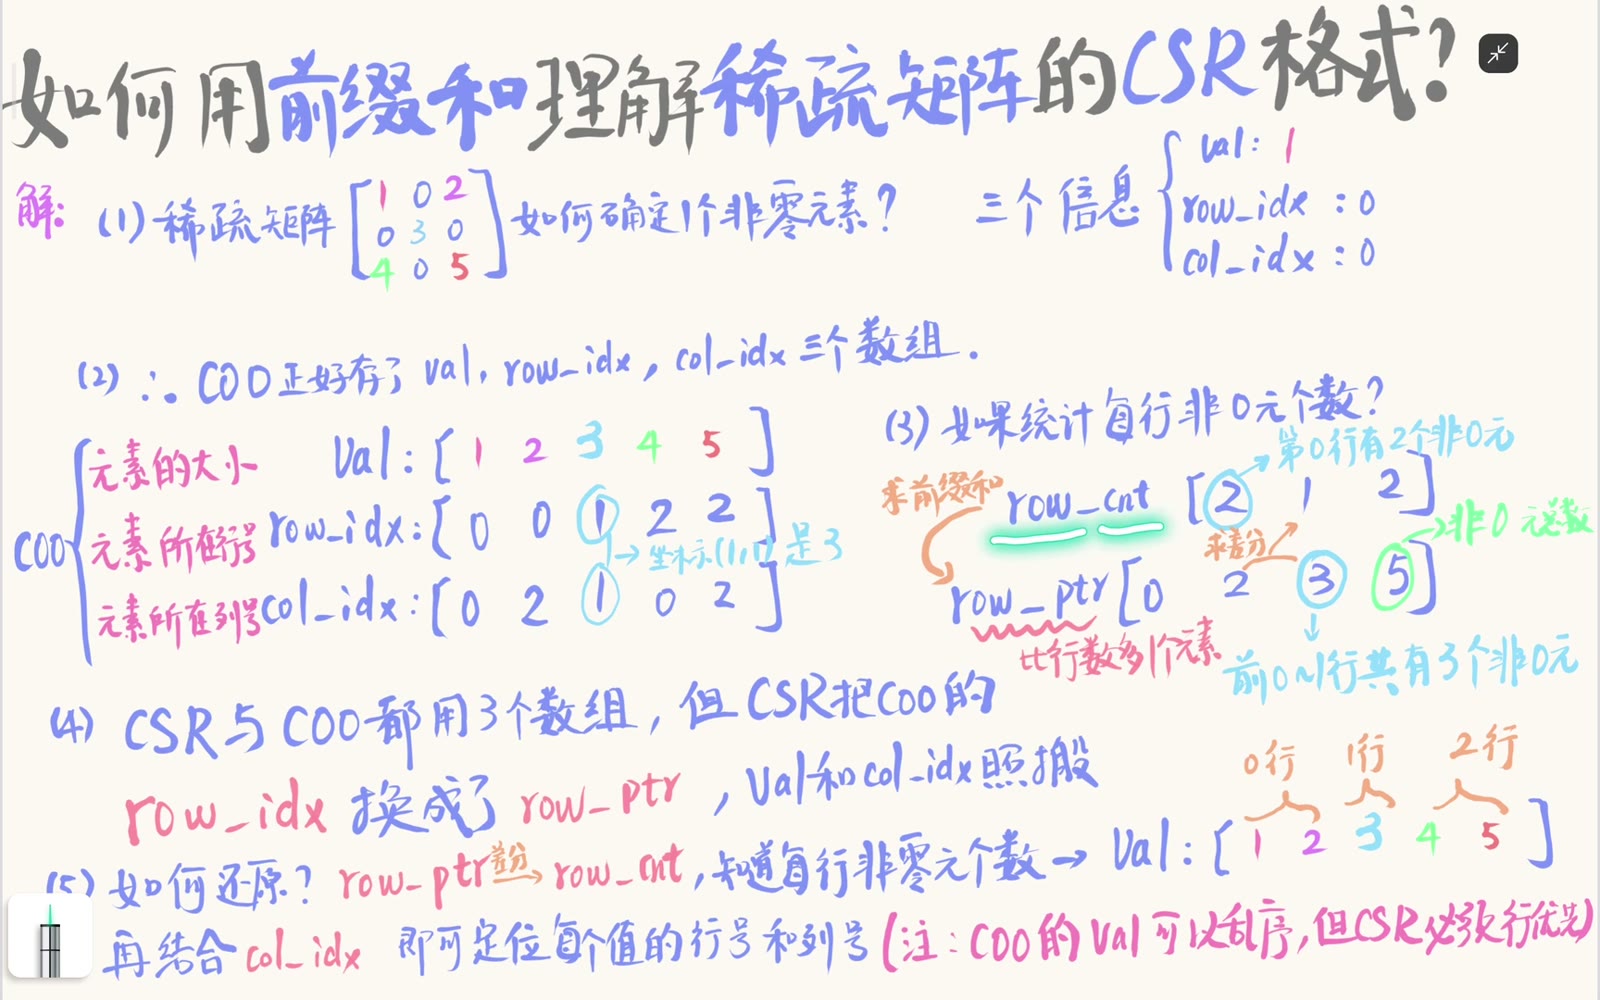 如何用前缀和理解稀疏矩阵的CSR格式?
解: (1) 稀疏矩阵 [1 0 2
0 3 0
4 0 5] 如何确定1个非零元素? 三个信息 { val: 1
row_idx : 0
col_idx : 0
(2) ∴ COO正好存了 val, row_idx, col_idx 三个数组.
COO {
元素的大小 Val: [ 1 2 3 4 5 ]
元素所在行号 row_idx: [ 0 0 1 2 2 ]
→ 坐标(1,1) 是3
元素所在列号 col_idx: [ 0 2 1 0 2 ]
(3) 如果统计每行非0元个数?
→ 第0行有2个非0元
求前缀和
row_cnt [ 2 1 2 ]
求差分
→ 非0元总数
row_ptr [ 0 2 3 5 ]
比行数多1个元素
前0~1行共有3个非0元
(4) CSR与COO都用3个数组, 但CSR把COO的
row_idx 换成了 row_ptr , Val和col_idx照搬
(5) 如何还原? row_ptr 差分→ row_cnt, 知道每行非零元个数 → Val: [ 1 2 3 4 5 ]
0行 1行 2行
再结合 col_idx 即可定位每个值的行号和列号 (注: COO的Val可以乱序, 但CSR必须行优先)